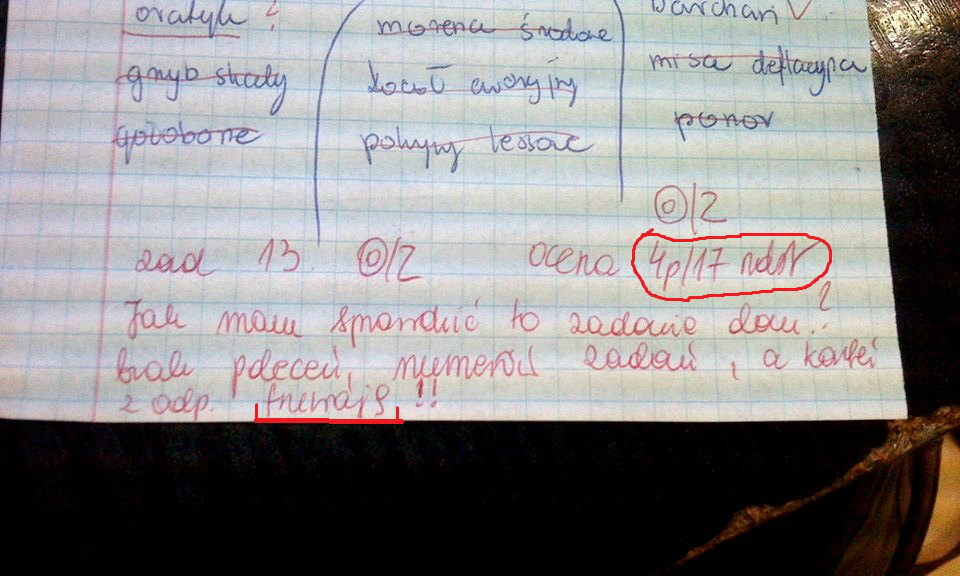 oratyk ?
morena środow
barchan V
gnyb skały
kocioł eworsyjny
misa deflacyjna
żłobone
pokrywy lessowe
ponor
0/2
zad 13. 0/2 ocena 4p/17 ndst
Jak mam sprawdzić to zadanie dom.?
brak poleceń, numerów zadań, a kartki
z odp. fruwają!!